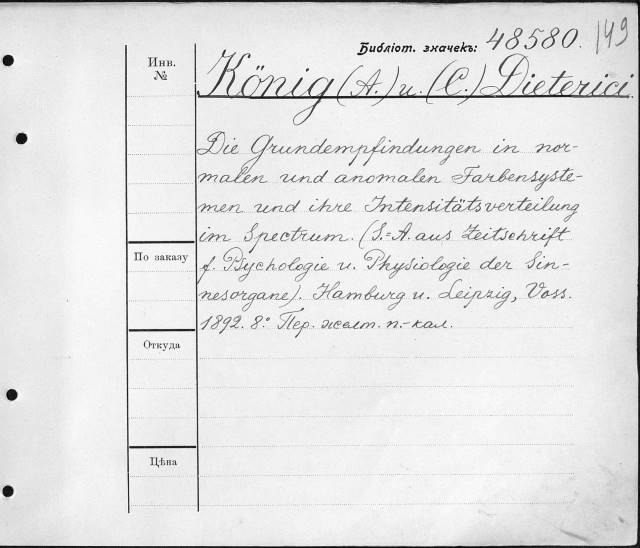 149
Библіот. значекъ: 48580.
Инв.
№
König (A.) u. (C.) Dieterici.
Die Grundempfindungen in nor-
malen und anomalen Farbensyste-
men und ihre Intensitätsverteilung
im Spectrum. (S.=A. aus Zeitschrift
f. Psychologie u. Physiologie der Sin-
nesorgane). Hamburg u. Leipzig, Voss.
1892. 8.° Пер. желт. п.-кал.
По заказу
Откуда
Цѣна